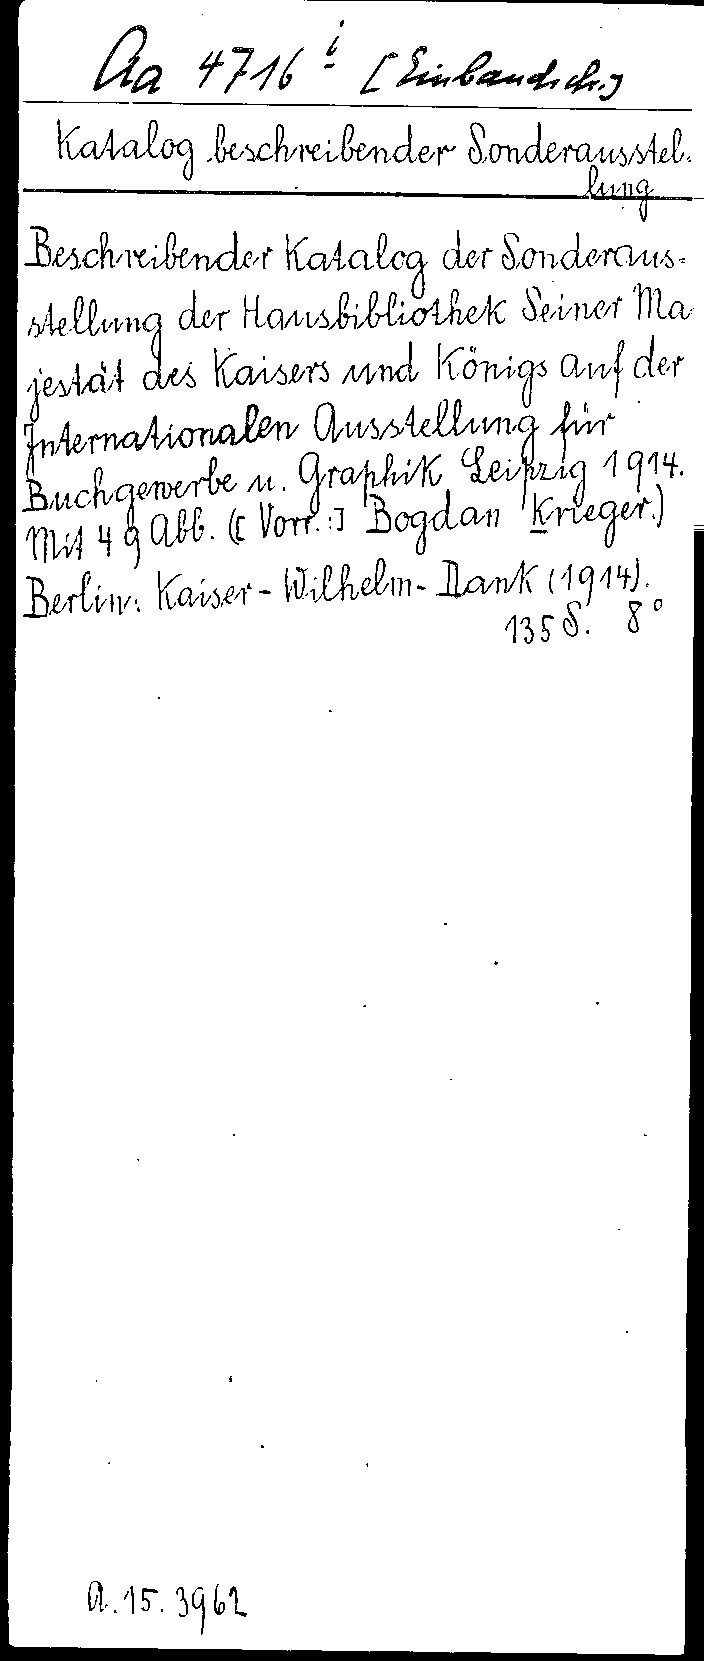 Aa 4716 i [Einbandsch.]
Katalog beschreibender Sonderausstel-
lung
Beschreibender Katalog der Sonderaus-
stellung der Hausbibliothek Seiner Ma
jestät des Kaisers und Königs auf der
Internationalen Ausstellung für
Buchgewerbe u. Graphik Leipzig 1914.
Mit 49 Abb. ([Vorr.:] Bogdan Krieger.)
Berlin: Kaiser-Wilhelm-Dank (1914).
135 S. 8°
A. 15. 3962